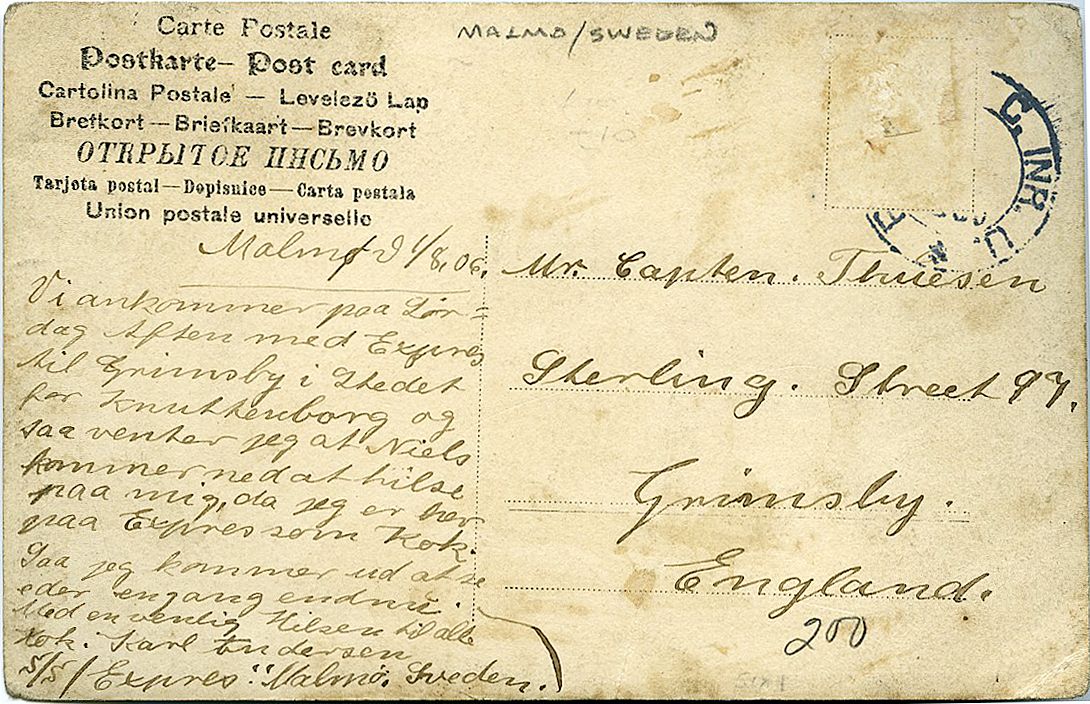 Carte Postale
Postkarte — Post card
Cartolina Postale — Levelező Lap
Brefkort — Briefkaart — Brevkort
ОТКРЫТОЕ ПИСЬМО
Tarjeta postal — Dopisnice — Carta postala
Union postale universelle
MALMO/SWEDEN
C. INR. U.
Malmø d 1/8. 06.
Vi ankommer paa Lør=
dag Aften med Expres
til Grimsby i Stedet
for Knuttenborg og
saa venter jeg at Niels
kommer ned at hilse
paa mig, da jeg er her
paa Expres som Kok.
Saa jeg kommer ud at se
eder engang endnu.
Med en venlig Hilsen til alle
Kok. Karl Andersen
S/S "Expres" Malmø, Sveden.
Mr. Capten. Thuesen
Sterling. Street 97.
Grimsby.
England.
200